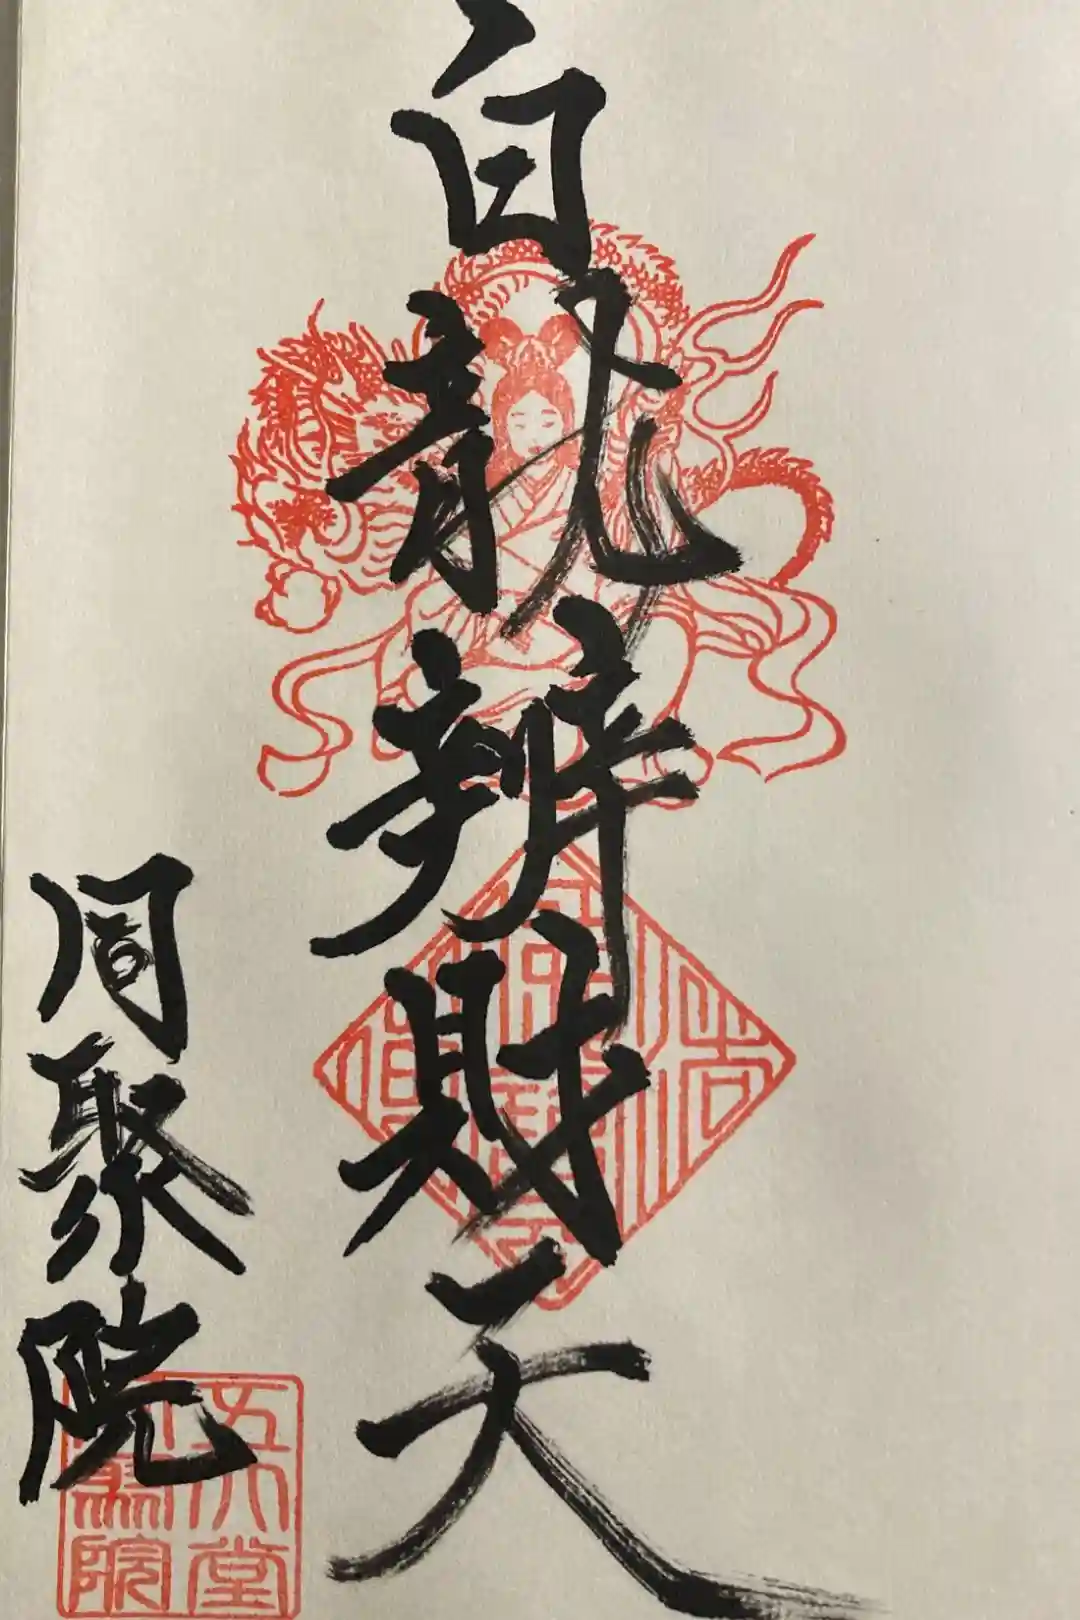 白龍辨財天
同聚院
五大堂
同聚院